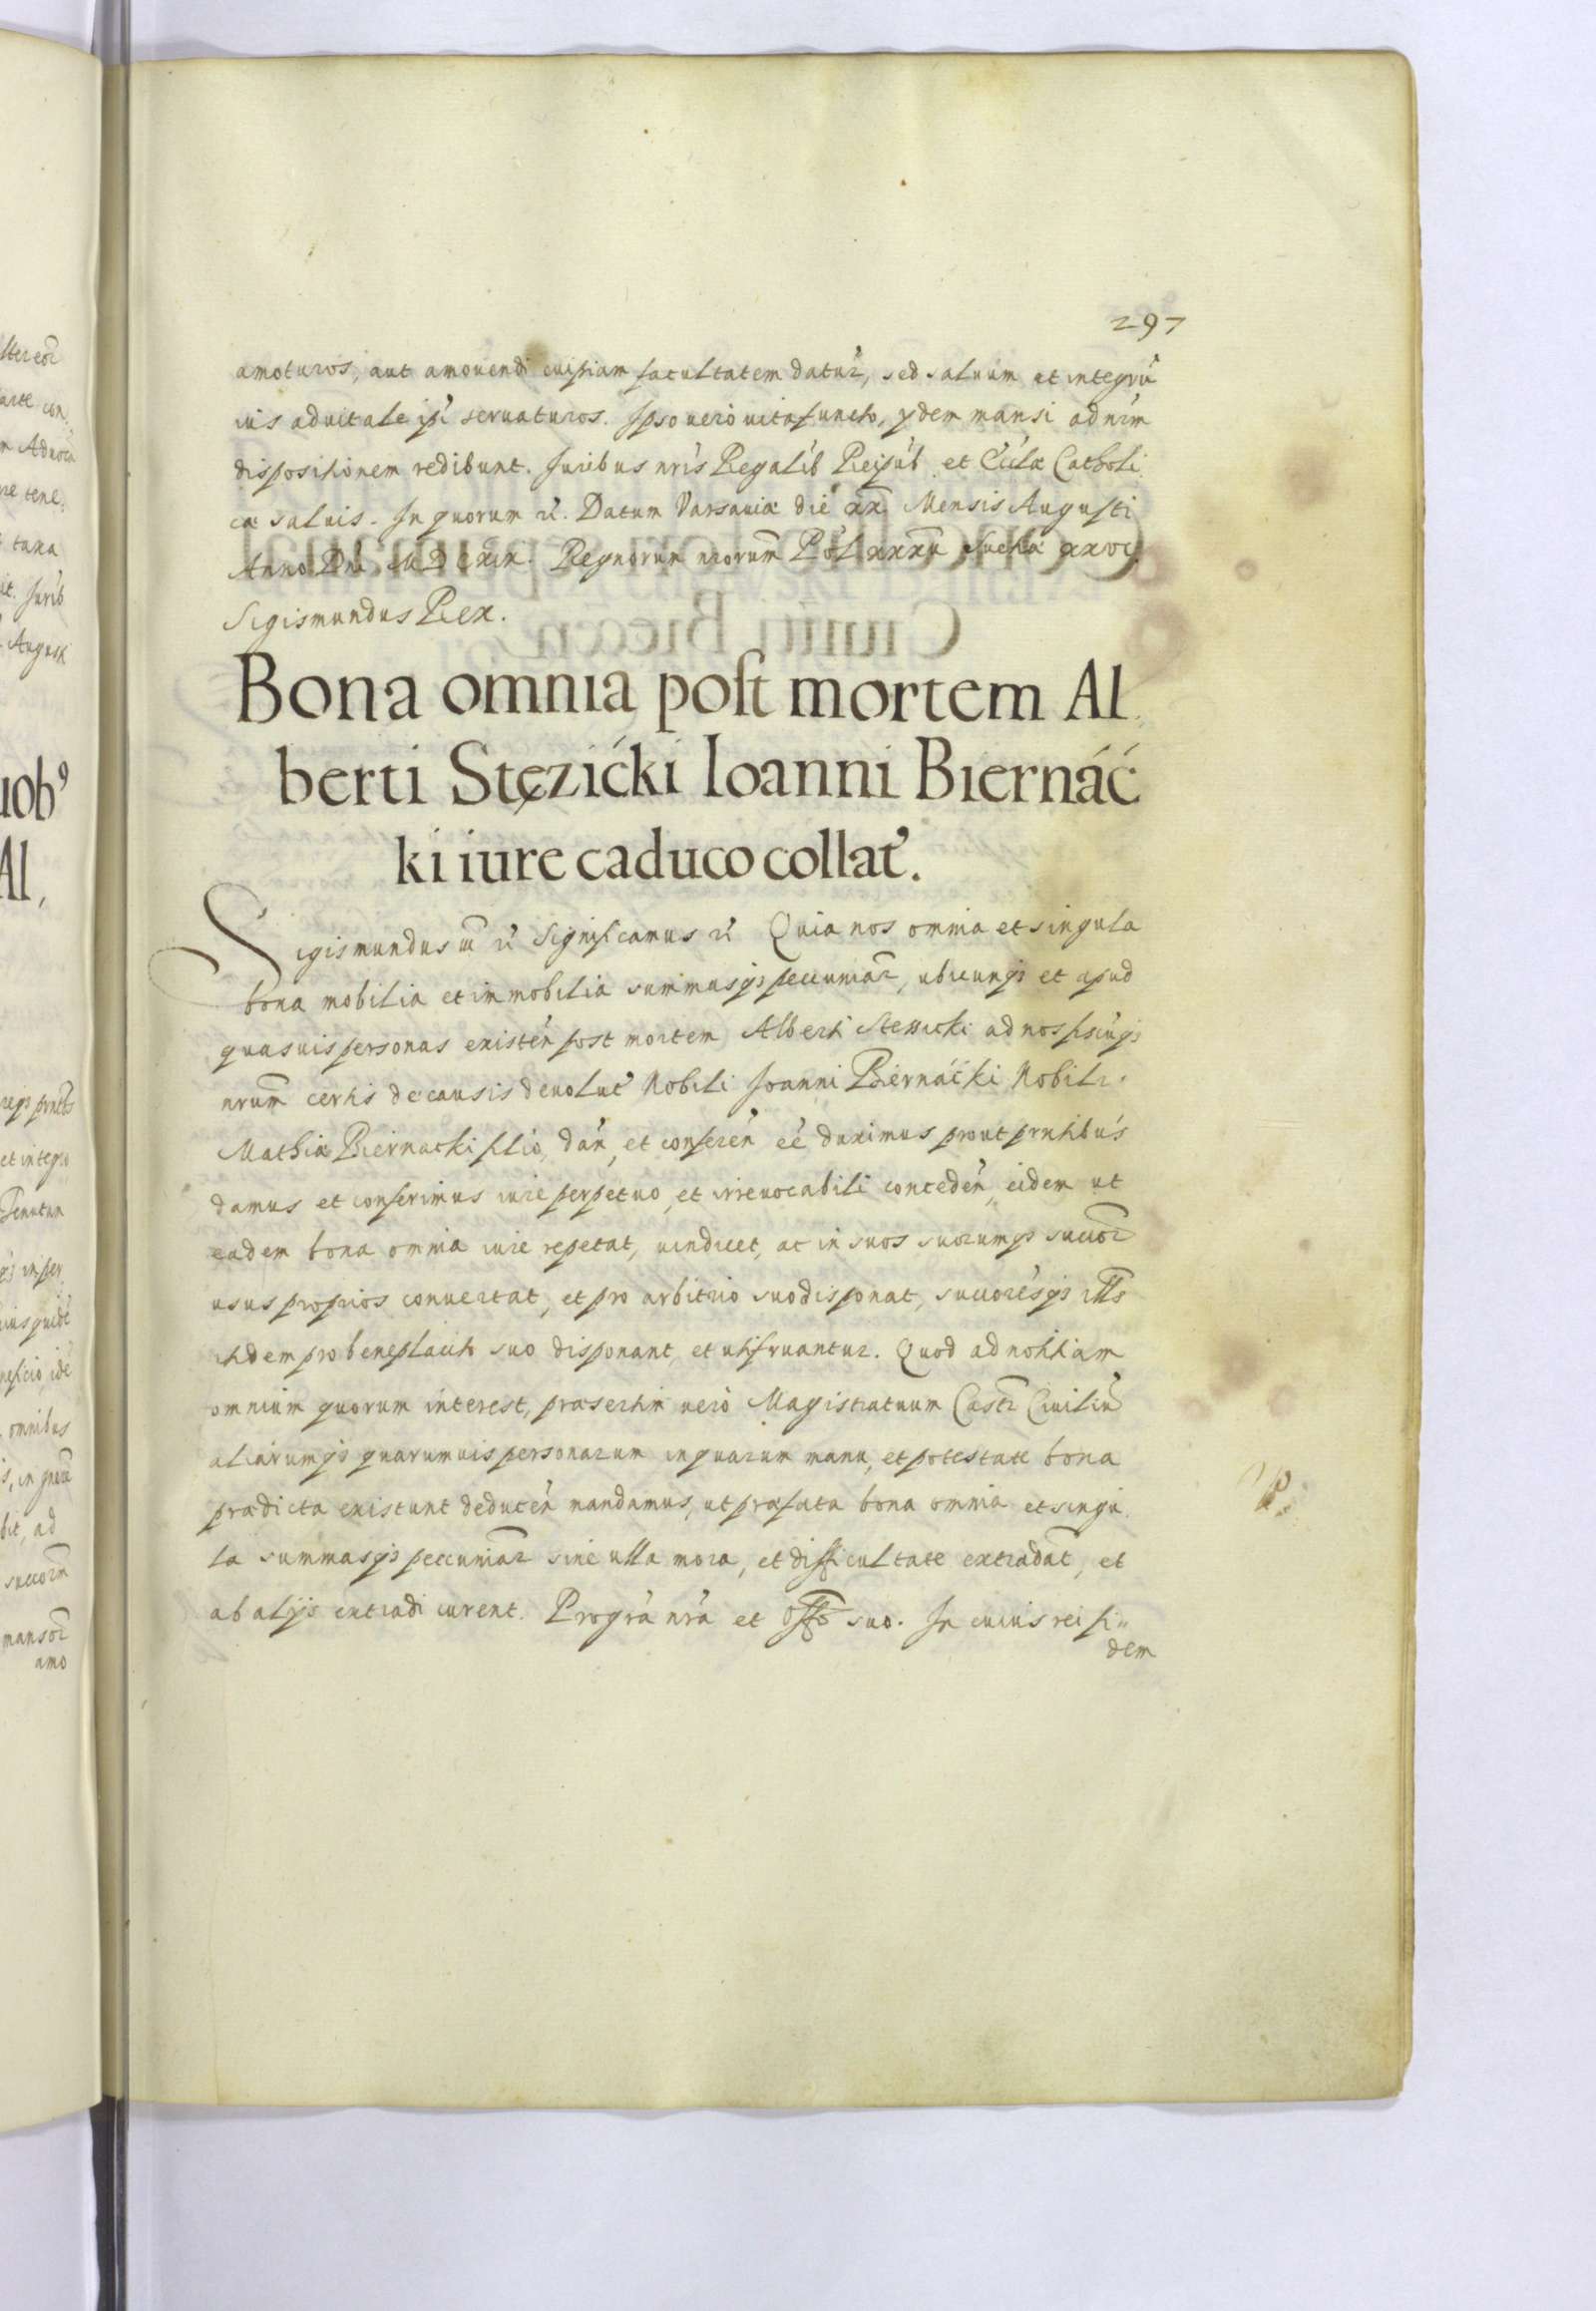 297
amoturos, aut amouendi cuipiam facultatem datur̃, sed saluum et integrũ
ius aduitale ip̃i seruaturos. Ipso uero uita functo, ydem mansi ad nr̃m
dispositionem redibunt. Juribus nr̃is Regalib Reipub et Eccl̃æ Catholi
cæ saluis. In quorum rei. Datum Varsauiæ die xx Mensis Augusti
Anno Dni M D C XIX. Regnorum nrorum Pol xxxii Sueciæ xxvi
Sigismundus Rex.
Bona omnia post mortem Al
berti Stęzićki Ioanni Biernáć
ki iure caduco collat̃.
Sigismundus iii Significamus Quia nos omnia et singula
bona mobilia et immobilia summasq₃ pecuniar̃, ubicunq₃ et apud
quasuis personas existeñ post mortem Alberti ad nos fiscũq₃
nrum certis de causis deuolut̃ Nobili Joanni Biernaćki Nobil.
Mathiæ Biernacki filio, dañ, et confereñ eẽ duximus prout prñtibus
damus et conferimus iure perpetuo, et irreuocabili concedeñ, eidem ut
eadem bona omnia iure repetat, uindicet, ac in suos suorumq₃ succor̃
usus proprios conuertat, et pro arbitrio suo disponat, succoresq₃ ill̃s
itidem pro beneplacito suo disponant, et utifruantur. Quod ad notitiam
omnium quorum interest, præsertim uero Magistratuum Castr̃ Ciuiliũ
aliarumq₃ quarumuis personarum in quarum manu, et potestate bona
prædicta existunt deduceñ mandamus, ut præfata bona omnia et singu
la summasq₃ pecuniar̃ sine ulla mora, et difficultate extradant, et
ab alijs extradi curent. Pro gr̃a nr̃a et off̃o suo. In cuius rei fi„
dem